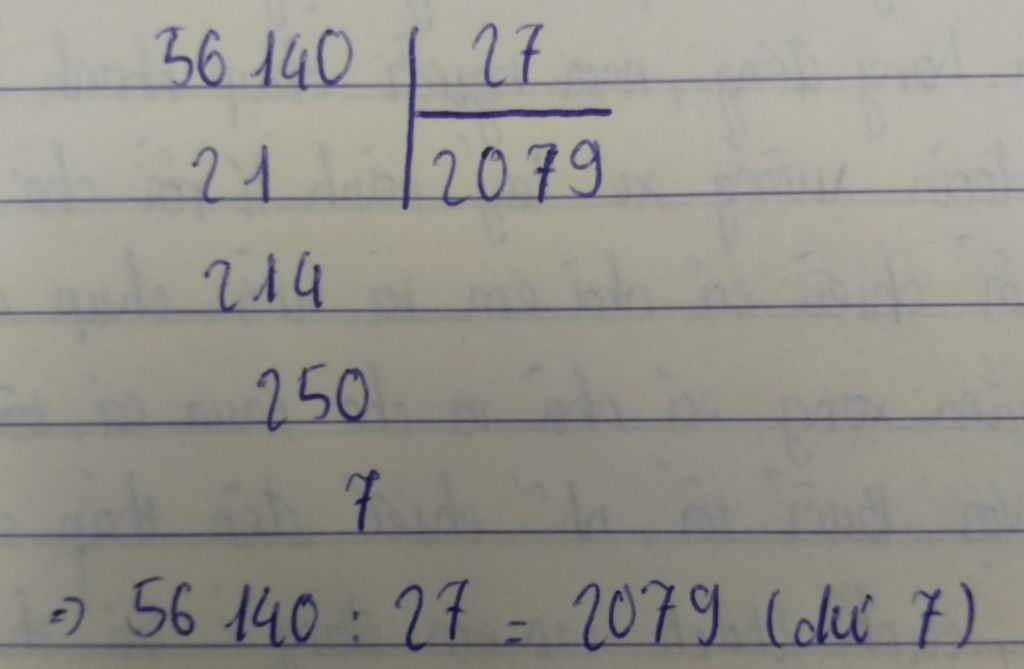 56 140 | 27
21 | 2079
214
250
7
=> 56 140 : 27 = 2079 (dư 7)